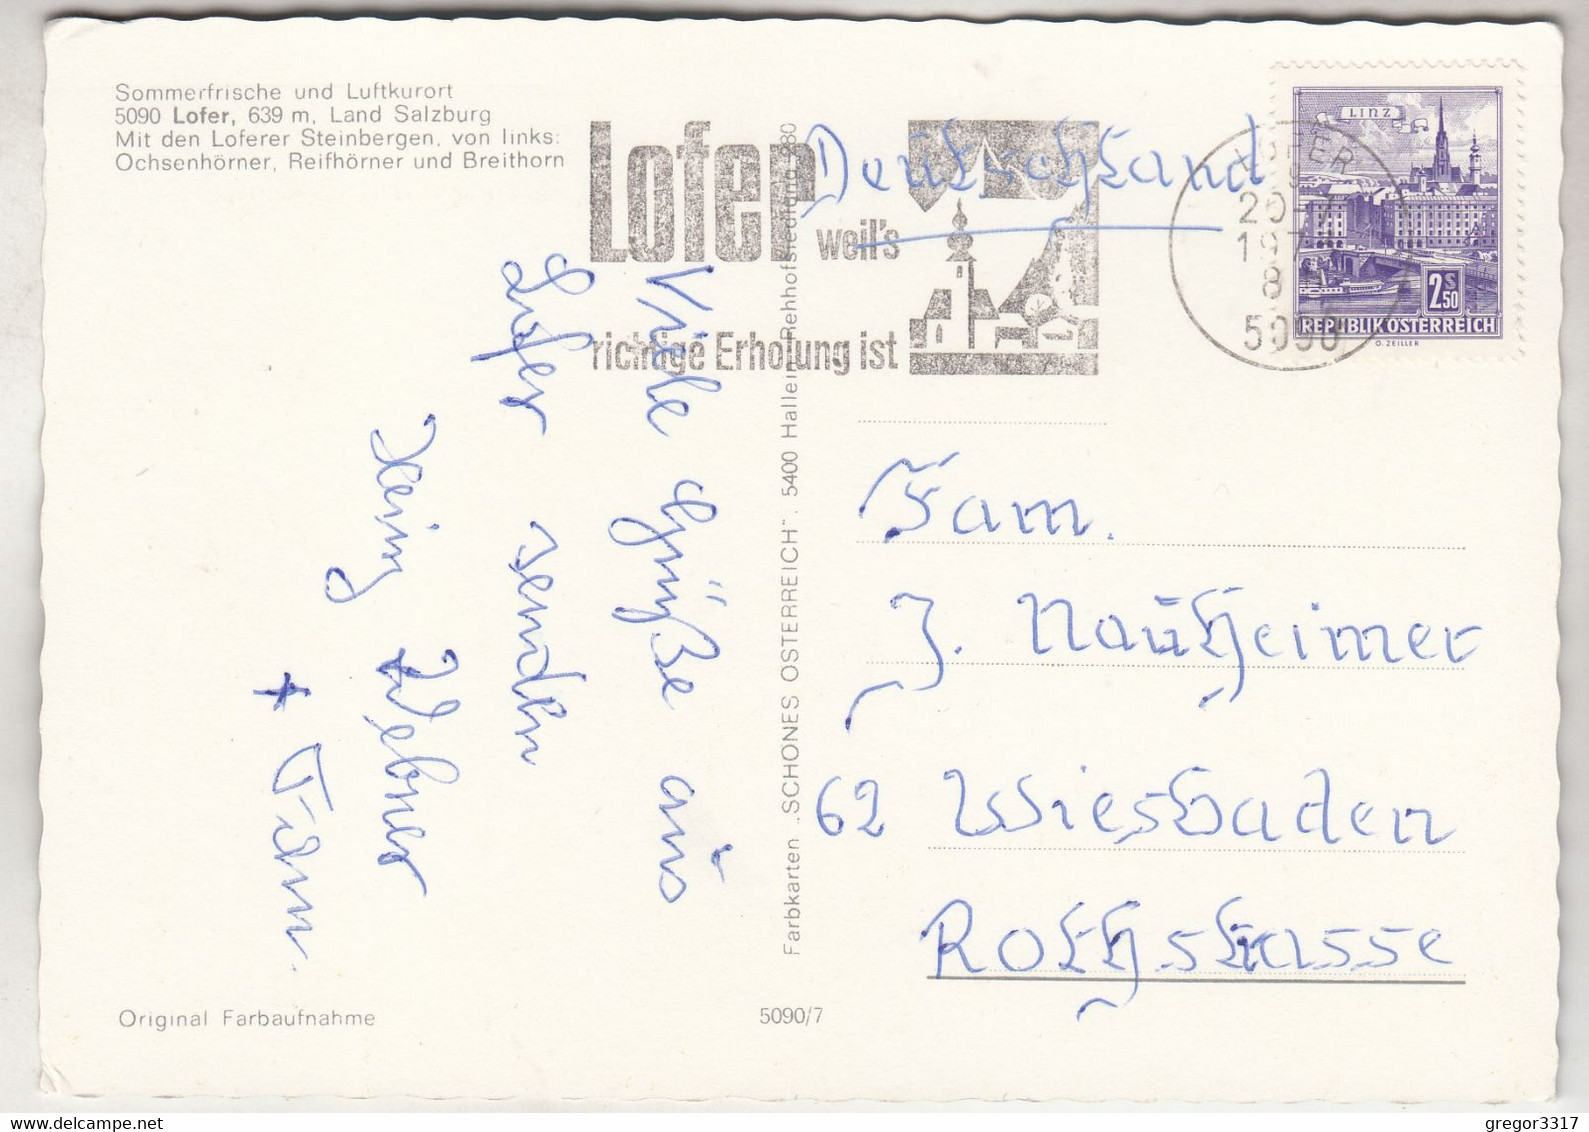 Sommerfrische und Luftkurort
5090 Lofer, 639 m, Land Salzburg
Mit den Loferer Steinbergen, von links:
Ochsenhörner, Reifhörner und Breithorn
Lofer
weil's
richtige Erholung ist
Deutschland
LOFER
5090
LINZ
2S50
REPUBLIK ÖSTERREICH
O. ZEILLER
Viele Grüße aus
Lofer senden
Heinz Werner
+ Fam.
Farbkarten „SCHÖNES ÖSTERREICH", 5400 Hallein-Rehhofsiedlung 280
Fam.
J. Nauheimer
62 Wiesbaden
Rothstrasse
Original Farbaufnahme
5090/7
gregor3317